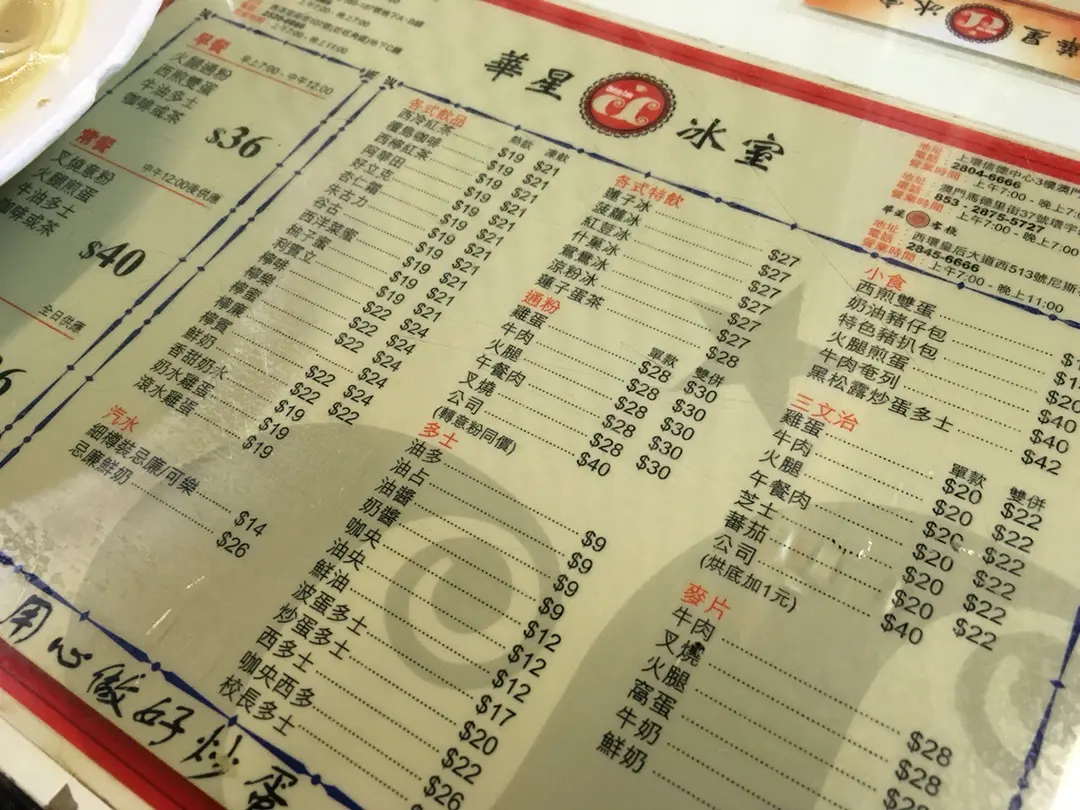 華星冰室
早餐 早上7:00 - 中午12:00
火腿通粉
西煎雙蛋
牛油多士
咖啡或茶
$36
常餐 中午12:00後供應
叉燒意粉
火腿煎蛋
牛油多士
咖啡或茶
$40
全日供應
各式飲品 熱飲 凍飲
西冷紅茶 $19 $21
咖啡 $19 $21
西檸紅茶 $19 $21
阿華田 $19 $21
好立克 $19 $21
杏仁霜 $19 $21
朱古力 $19 $21
谷古 $19 $21
西洋菜蜜
柚子蜜
檸樂
檸蜜
檸廉
檸賓
鮮奶 $22 $24
香甜奶水 $22 $22
奶水雞蛋 $19
滾水雞蛋 $19
汽水
細樽裝忌廉/可樂 $14
忌廉鮮奶 $26
各式特飲
蓮子冰 $27
菠蘿冰 $27
紅豆冰 $27
什菓冰 $27
鴛鴦冰 $27
涼粉冰 $27
蓮子蛋茶 $28
通粉 單款 雙併
雞蛋 $28 $30
牛肉 $28 $30
火腿 $28 $30
午餐肉 $28 $30
叉燒 $28 $30
公司 $40
(轉意粉同價)
多士
油多 $9
油占 $9
油醬 $9
奶醬 $9
咖央 $12
油央 $12
鮮油 $12
波蛋多士 $17
炒蛋多士 $20
西多士 $22
咖央西多 $26
校長多士
地址：上環信德中心3樓澳門
電話：2804-6666
營業時間：上午7:00 - 晚上
地址：澳門馬德里街37號環宇
電話：853 - 2875-5727
營業時間：上午7:00 - 晚上7:00
地址：西環皇后大道西513號尼斯
電話：2845-6666
營業時間：上午7:00 - 晚上11:00
小食
西煎雙蛋
奶油豬仔包
特色豬扒包 $20
火腿煎蛋 $40
牛肉奄列 $40
黑松露炒蛋多士 $42
三文治 單款 雙併
雞蛋 $20 $22
牛肉 $20 $22
火腿 $20 $22
午餐肉 $20 $22
芝士 $20 $22
蕃茄 $20 $22
公司 $40
(烘底加1元)
麥片
牛肉 $28
叉燒 $28
火腿
窩蛋
牛奶
鮮奶
用心做好炒蛋